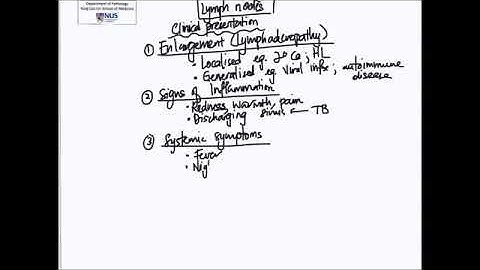 Department of Pathology
Yong Loo Lin School of Medicine
NUS
Lymph nodes
Clinical presentation
① Enlargement (lymphadenopathy)
• Localised eg. 2° Ca ; HL
• Generalised eg. Viral infxs ; autoimmune
disease
② Signs of Inflammation
• Redness, warmth, pain
• Discharging sinus ← TB
③ Systemic symptoms
• Fever
• Nig